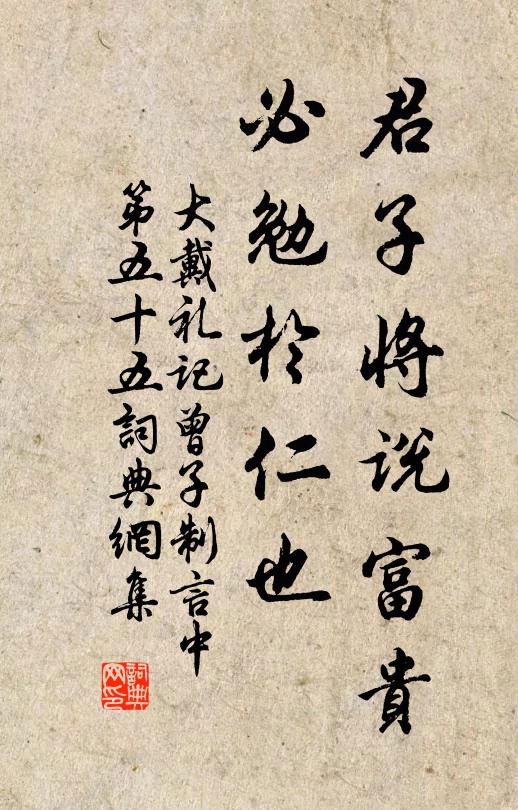 君子将说富貴
必勉於仁也
大戴礼记曾子制言中
第五十五詞典網集
詞典
网印